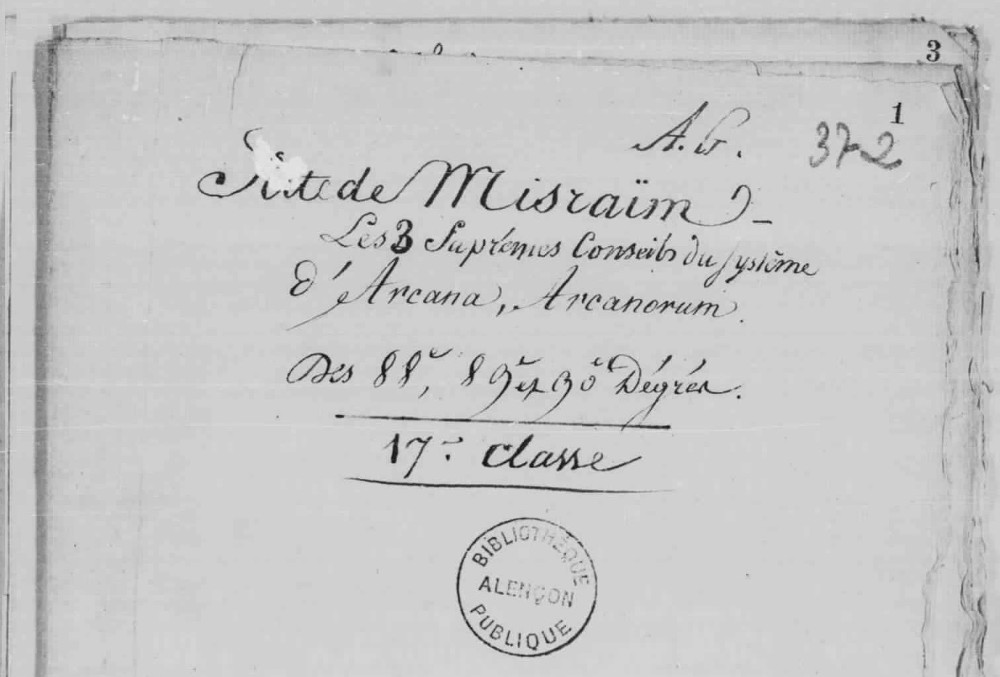 3
1
A. G.
37-2
Rite de Misraïm
Les 3 Suprêmes Conseils du système
d'Arcana, Arcanorum.
Des 88e, 89e et 90e Dégrés.
17e. classe
BIBLIOTHÈQUE
ALENÇON
PUBLIQUE